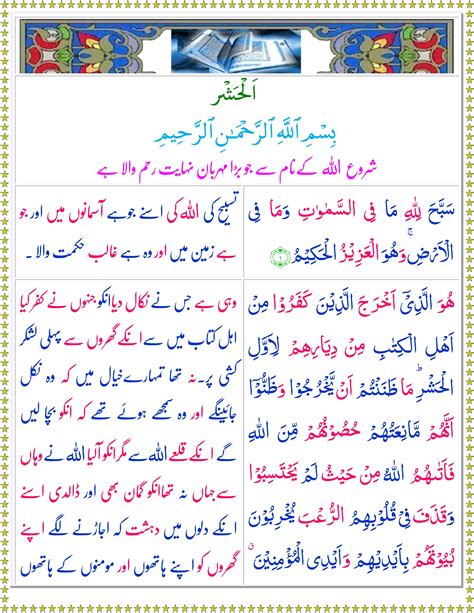 اَلْحَشْر
بِسْمِ اللَّهِ الرَّحْمَٰنِ الرَّحِيمِ
شروع اللہ کےنام سے جو بڑا مہربان نہایت رحم والا ہے
سَبَّحَ لِلّٰهِ مَا فِى السَّمٰوٰتِ وَمَا فِى
الْاَرْضِ‌ۚ وَهُوَ الْعَزِيْزُ الْحَكِيْمُ ﴿۱﴾
تسبیح کی اللہ کی اسنے جوہے آسمانوں میں اور جو
ہے زمین میں اور وہ ہے غالب حکمت والا ۔
هُوَ الَّذِىْۤ اَخْرَجَ الَّذِيْنَ كَفَرُوْا مِنْ
اَهْلِ الْكِتٰبِ مِنْ دِيَارِهِمْ لِاَوَّلِ
الْحَشْرِ‌ؕ مَا ظَنَنْتُمْ اَنْ يَّخْرُجُوْا‌ وَظَنُّوْۤا
اَنَّهُمْ مَّانِعَتُهُمْ حُصُوْنُهُمْ مِّنَ اللّٰهِ
فَاَتٰٮهُمُ اللّٰهُ مِنْ حَيْثُ لَمْ يَحْتَسِبُوْا‌
وَقَذَفَ فِىْ قُلُوْبِهِمُ الرُّعْبَ‌ يُخْرِبُوْنَ
بُيُوْتَهُمْ بِاَيْدِيْهِمْ وَاَيْدِى الْمُؤْمِنِيْنَۙ
وہی ہے جس نے نکال دیاانکو جنہوں نے کفر کیا
اہل کتاب میں سے انکےگھروں سے پہلی لشکر
کشی پر۔ نہ تھا تمہارےخیال میں کہ وہ نکل
جائینگے اور وہ سمجھے ہوئے تھے کہ انکو بچا لیں
گے انکے قلعےاللہ سےمگرانکو آلیا اللہ نےوہاں
سےجہاں نہ تھاانکو گمان بھی اور ڈالدی اسنے
انکے دلوں میں دہشت کہ اجاڑنے لگے اپنے
گھروں کو اپنے ہاتھوں اور مومنوں کے ہاتھوں